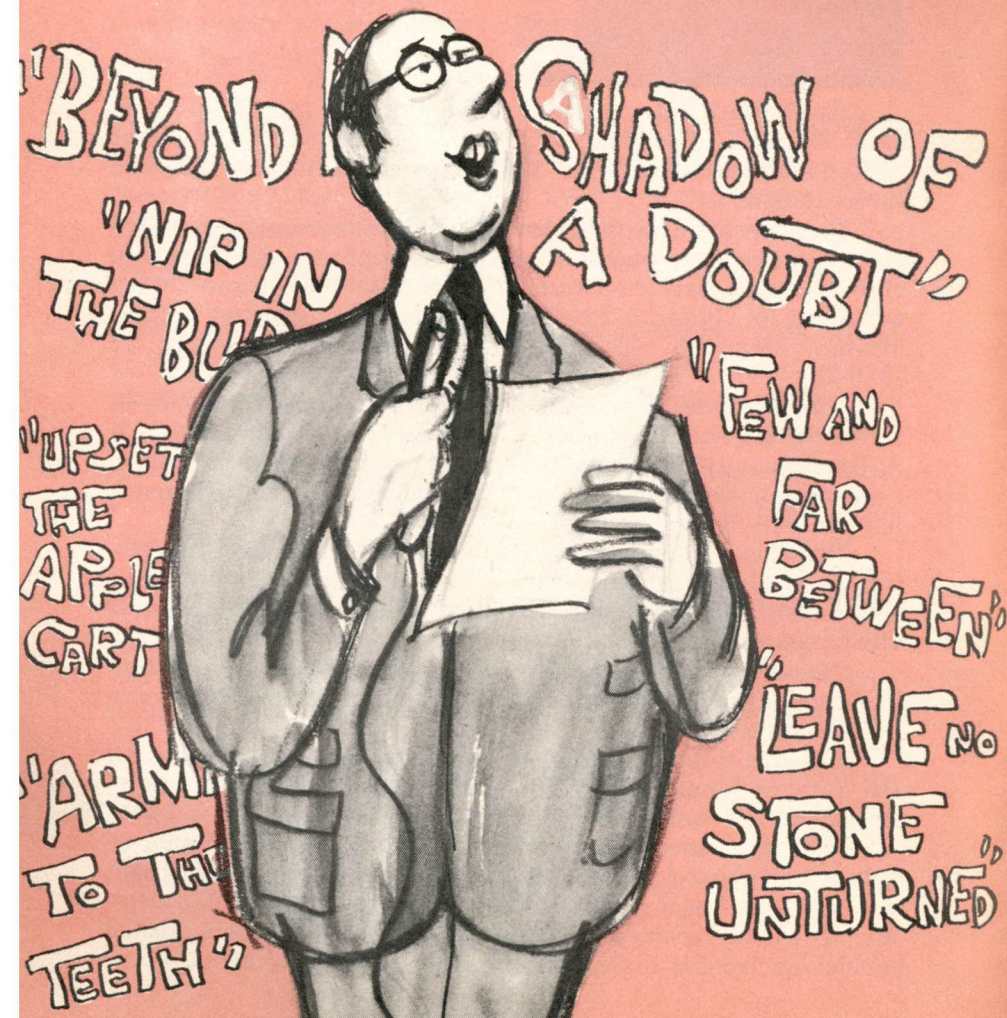 "BEYOND A SHADOW OF
A DOUBT"
"NIP IN
THE BUD
"UPSET
THE
APPLE
CART
"ARM
TO THE
TEETH"
"FEW AND
FAR
BETWEEN"
"LEAVE NO
STONE
UNTURNED"